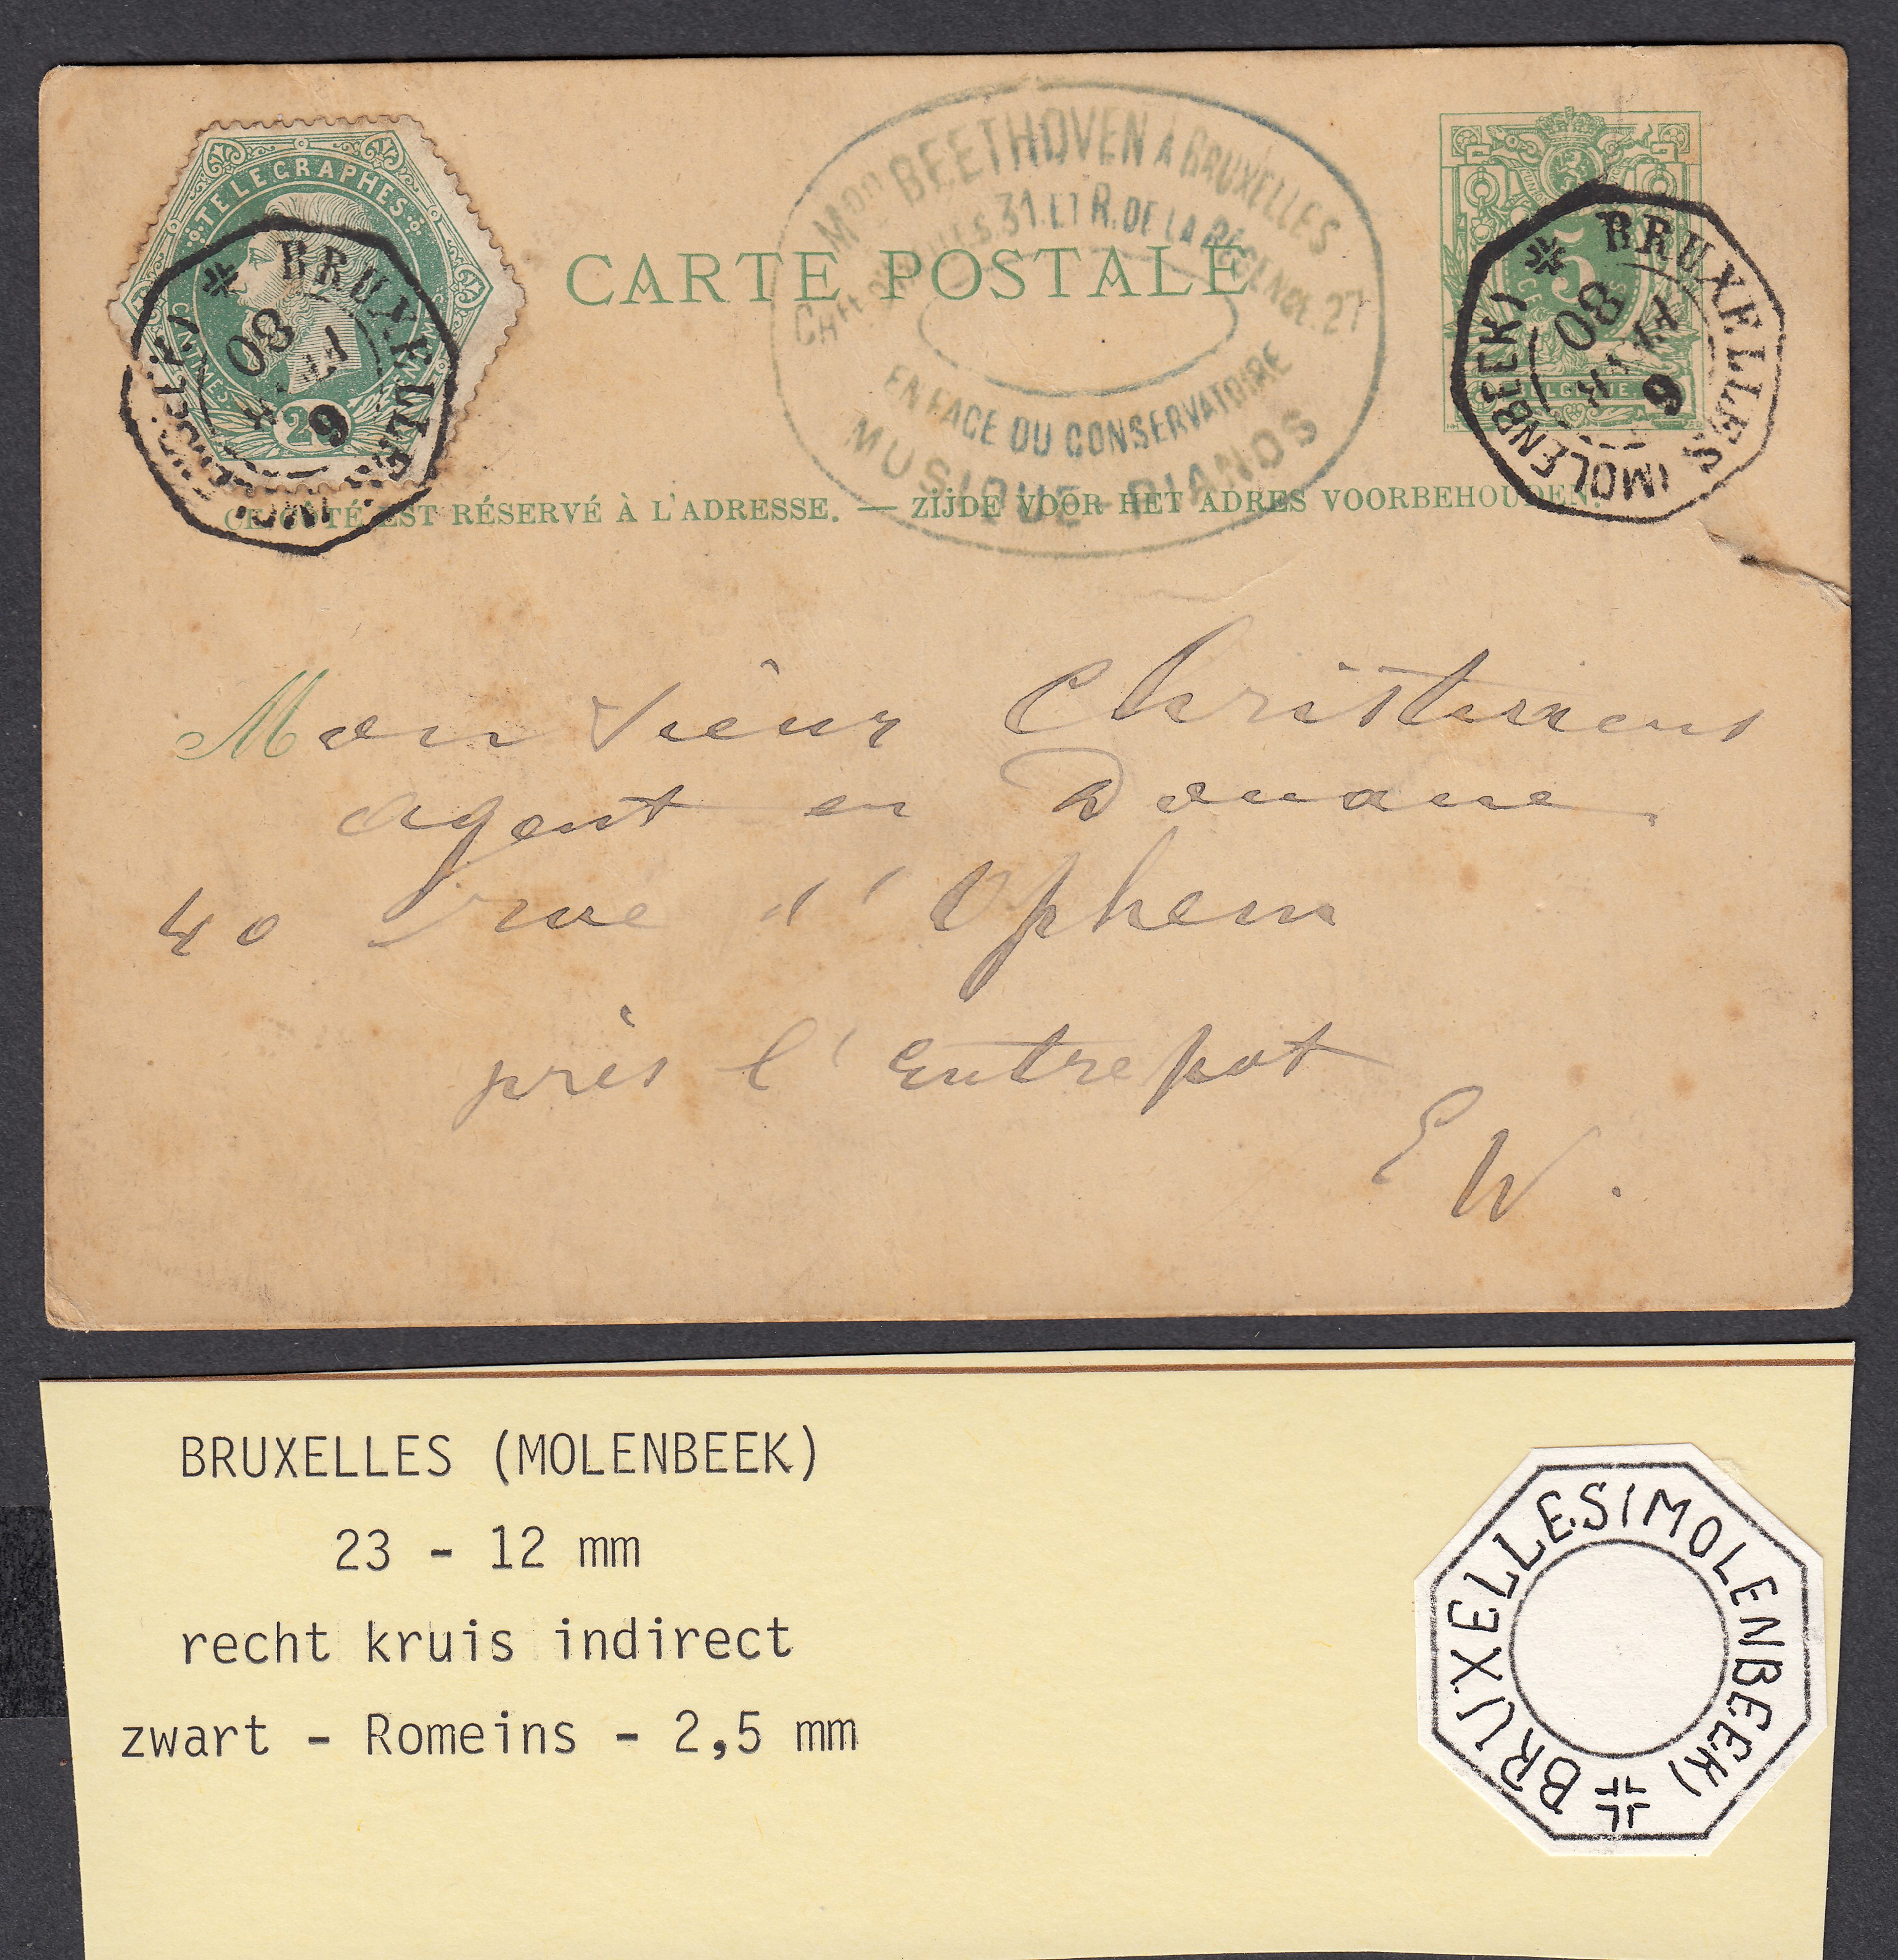 TELEGRAPHES
CENTIMES
25
* BRUXELLES (MOLENBEEK)
9
80
Mon BEETHOVEN A BRUXELLES
31 ET R. DE LA RÉGENCE. 27
EN FACE DU CONSERVATOIRE
MUSIQUE - PIANOS
CARTE POSTALE
5
BELGIQUE
* BRUXELLES (MOLENBEEK)
9
80
CE CÔTÉ EST RÉSERVÉ À L'ADRESSE. — ZIJDE VOOR HET ADRES VOORBEHOUDEN.
Monsieur Christiaens
agent en Douane
40 rue d'Ophem
près l'Entrepot
EW.
BRUXELLES (MOLENBEEK)
23 - 12 mm
recht kruis indirect
zwart - Romeins - 2,5 mm
BRUXELLES(MOLENBEEK)